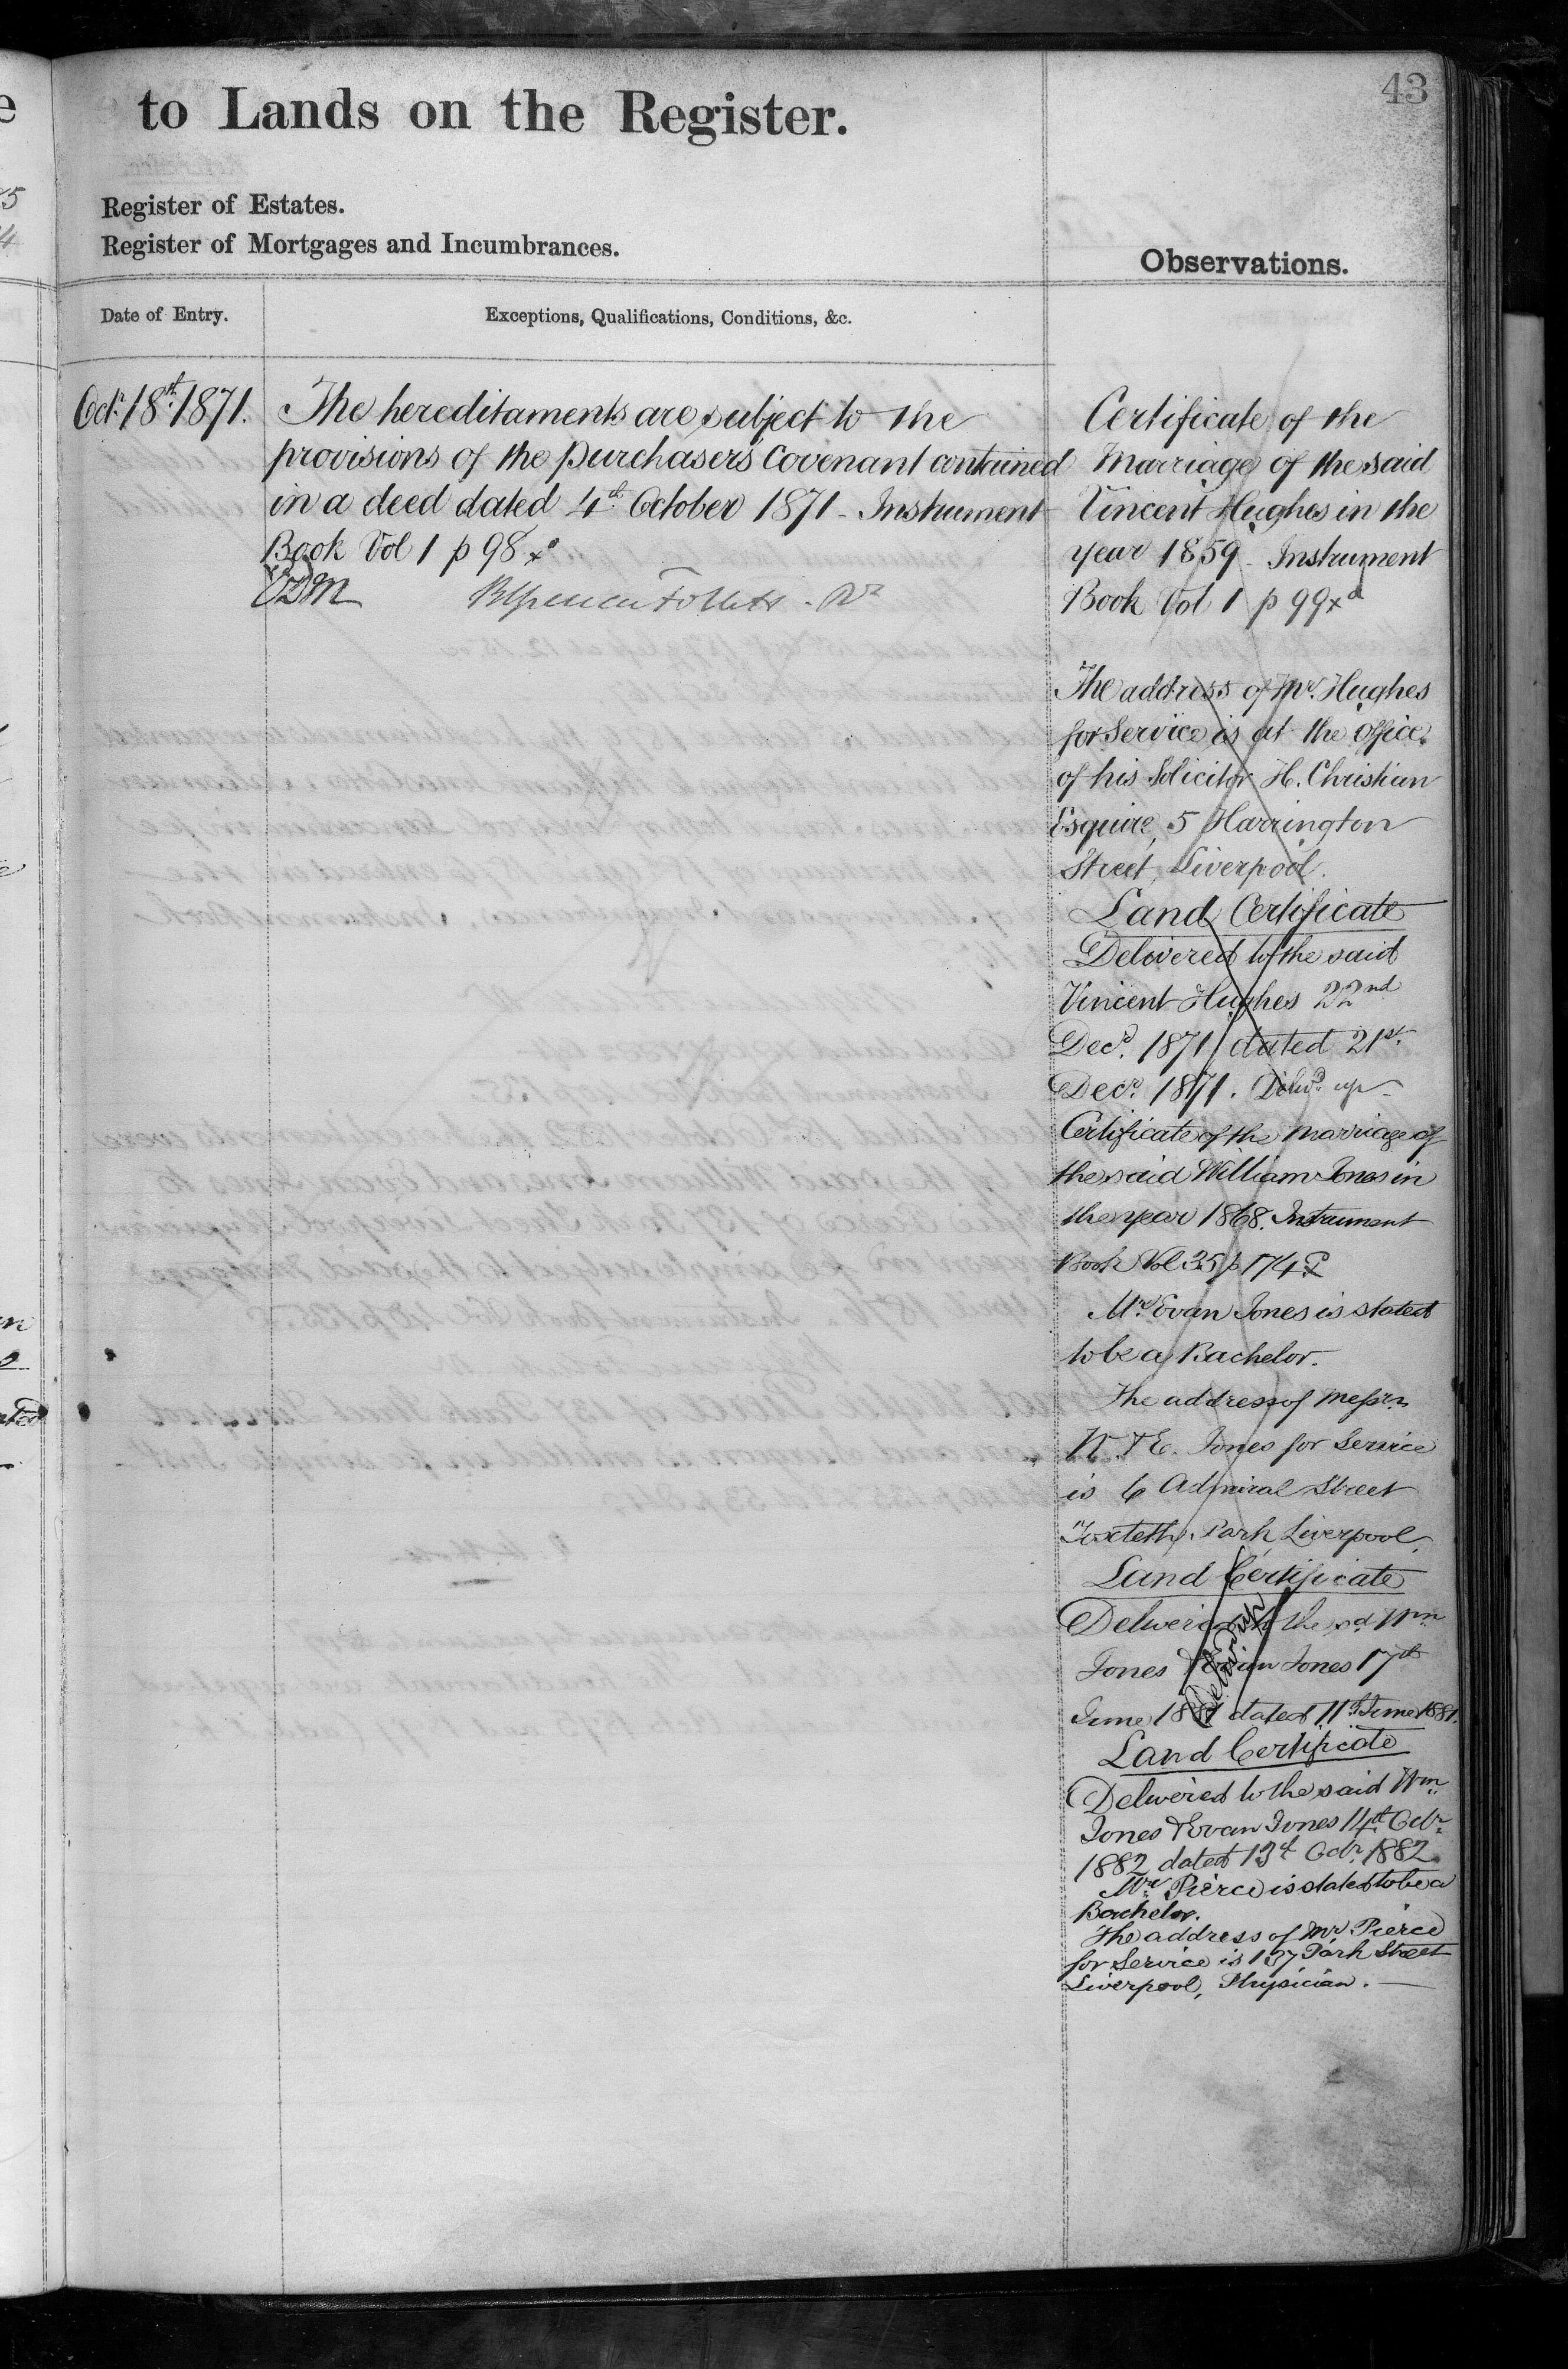 43
to Lands on the Register.
Register of Estates.
Register of Mortgages and Incumbrances.
Observations.
Date of Entry.
Exceptions, Qualifications, Conditions, &c.
Octr. 18th. 1871.
The hereditaments are subject to the
provisions of the purchasers Covenant contained
in a deed dated 4th. October 1871 - Instrument
Book Vol 1 p 98
Certificate of the
Marriage of the said
Vincent Hughes in the
year 1859 - Instrument
Book Vol 1 p 99
The address of Mr. Hughes
for Service is at the Office
of his Solicitor H. Christian
Esquire, 5 Harrington
Street, Liverpool.
Land Certificate
Delivered to the said
Vincent Hughes 22nd
Decr. 1871 dated 21st.
Decr. 1871. Delivd. up
Certificate of the Marriage of
the said William Jones in
the year 1868. Instrument
Book Vol 35 p 174
Mr. Evan Jones is stated
to be a Bachelor.
The address of Messrs
W. & E. Jones for Service
is 6 Admiral Street
Toxteth Park Liverpool.
Land Certificate
Delivered to the sd. Wm.
Jones & Evan Jones 17th
June 1881 dated 11th June 1881.
Delivd. up
Land Certificate
Delivered to the said Wm.
Jones & Evan Jones 14th. Octr.
1882 dated 13th Octr. 1882.
Mr. Pierce is stated to be a
Bachelor.
The address of Mr. Pierce
for Service is 137 Park Street
Liverpool, Physician.